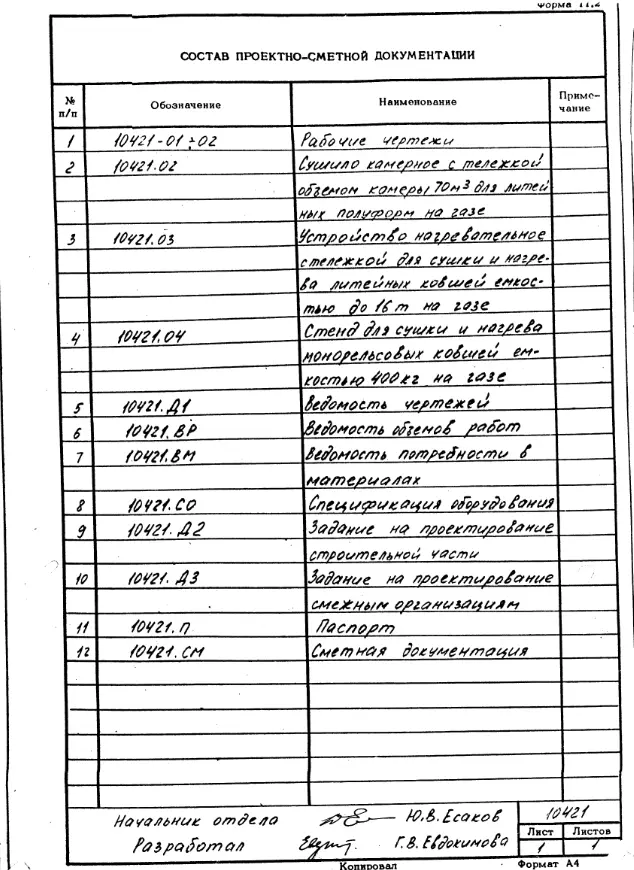 Форма 11.2
СОСТАВ ПРОЕКТНО-СМЕТНОЙ ДОКУМЕНТАЦИИ
№ п/п Обозначение Наименование Приме-
чание
1 10421-01÷02 Рабочие чертежи
2 10421.02 Сушило камерное с тележкой
объемом камеры 70м3 для литей
ных полуформ на газе
3 10421.03 Устройство нагревательное
с тележкой для сушки и нагре-
ва литейных ковшей емкос-
тью до 16т на газе
4 10421.04 Стенд для сушки и нагрева
монорельсовых ковшей ем-
костью 400кг на газе
5 10421.Д1 Ведомость чертежей
6 10421.ВР Ведомость обземов работ
7 10421.ВМ Ведомость потребности в
материалах
8 10421.СО Спецификация оборудования
9 10421.Д2 Задание на проектирование
строительной части
10 10421.Д3 Задание на проектирование
смежным организациям
11 10421.П Паспорт
12 10421.СМ Сметная документация
Начальник отдела Ю.В.Есаков 10421
Разработал Г.В.Евдокимова
Лист Листов
1 1
Копировал Формат А4